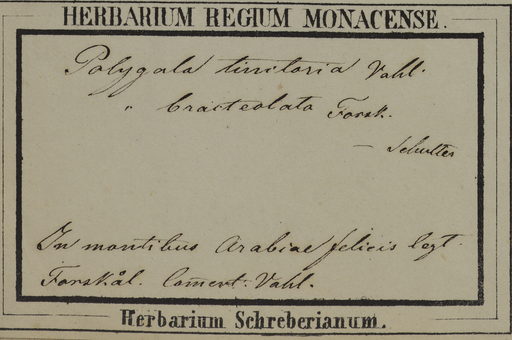 HERBARIUM REGIUM MONACENSE.
Polygala tinctoria Vahl.
" bracteolata Forsk.
— Schultes
In montibus Arabiae felicis legt.
Forskål. Comert. Vahl.
Herbarium Schreberianum.